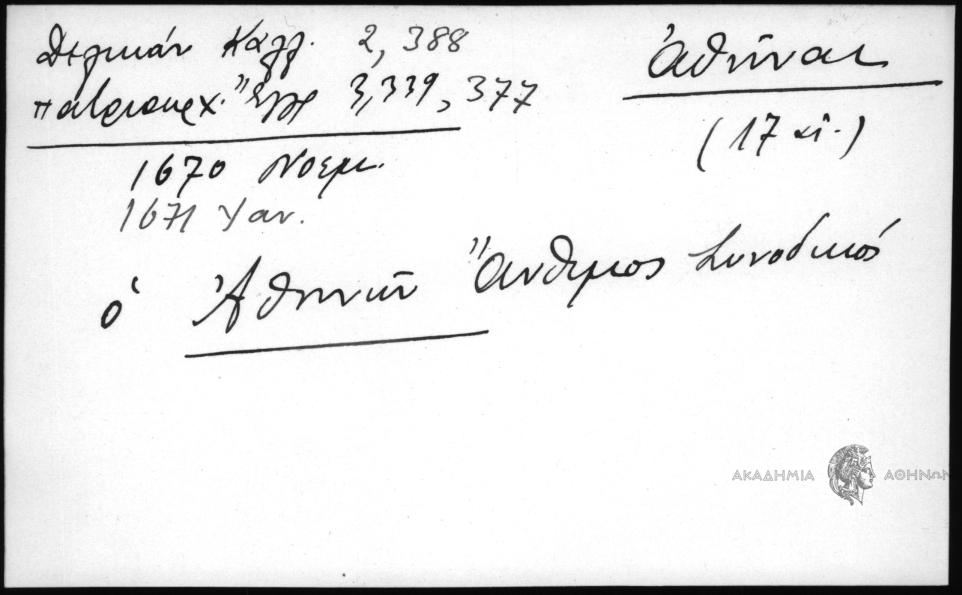 Δελικάν Καλλ. 2, 388
Πατριαρχ. Ἔγγρ 3,339, 377
Ἀθῆναι
(17 αἰ.)
1670 Νοεμ.
1671 Ἰαν.
ὁ Ἀθηνῶν Ἄνθιμος Συνοδικός
ΑΚΑΔΗΜΙΑ ΑΘΗΝΩΝ